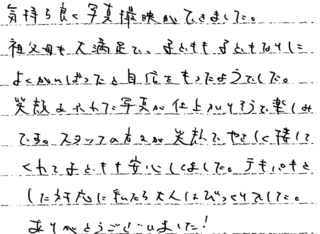 気持ち良く写真撮映ができました。
祖父母も大満足で、子どもも子どもなりに
よくがんばったと自信をもったようでした。
笑顔あふれた写真が仕上がりそうで楽しみ
です。スタッフの方々が笑顔でやさしく接して
くれて子どもも安心してました。テキパキと
した対応に私たち大人はびっくりでした。
ありがとうございました!